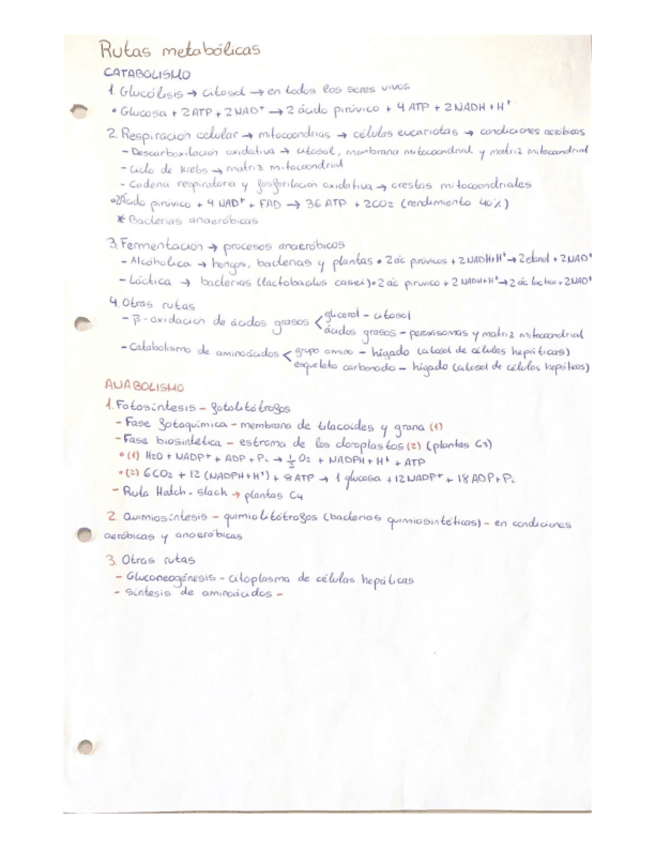 Rutas metabólicas
CATABOLISMO
1. Glucólisis → citosol → en todos los seres vivos
• Glucosa + 2 ATP + 2 NAD⁺ → 2 ácido pirúvico + 4 ATP + 2 NADH + H⁺
2. Respiración celular → mitocondrias → células eucariotas → condiciones aerobicas
- Descarboxilación oxidativa → citosol, membrana mitocondrial y matriz mitocondrial
- Ciclo de Krebs → matriz mitocondrial
- Cadena respiratoria y fosforilación oxidativa → crestas mitocondriales
• 2Ácido pirúvico + 4 NAD⁺ + FAD → 36 ATP + 2CO2 (rendimiento 40%)
* Bacterias anaeróbicas
3. Fermentación → procesos anaeróbicos
- Alcohólica → hongos, bacterias y plantas • 2 ác pirúvicos + 2 NADH+H⁺ → 2 etanol + 2 NAD⁺
- Láctica → bacterias (lactobacilus casei) • 2 ác pirúvico + 2 NADH+H⁺ → 2 ác láctico + 2NAD⁺
4. Otras rutas
- β-oxidación de ácidos grasos < glicerol - citosol
ácidos grasos - peroxisomas y matriz mitocondrial
- Catabolismo de aminoácidos < grupo amino - hígado (citosol de células hepáticas)
esqueleto carbonado - hígado (citosol de células hepáticas)
ANABOLISMO
1. Fotosíntesis - fotolitótrofos
- Fase fotoquímica - membrana de tilacoides y grana (1)
- Fase biosintética - estroma de los cloroplastos (2) (plantas C3)
• (1) H2O + NADP⁺ + ADP + Pi → ½ O2 + NADPH + H⁺ + ATP
• (2) 6CO2 + 12 (NADPH+H⁺) + 18 ATP → 1 glucosa + 12 NADP⁺ + 18 ADP + Pi
- Ruta Hatch-Slack → plantas C4
2. Quimiosíntesis - quimiolitótrofos (bacterias quimiosintéticas) - en condiciones
aeróbicas y anaeróbicas
3. Otras rutas
- Gluconeogénesis - citoplasma de células hepáticas
- Síntesis de aminoácidos -